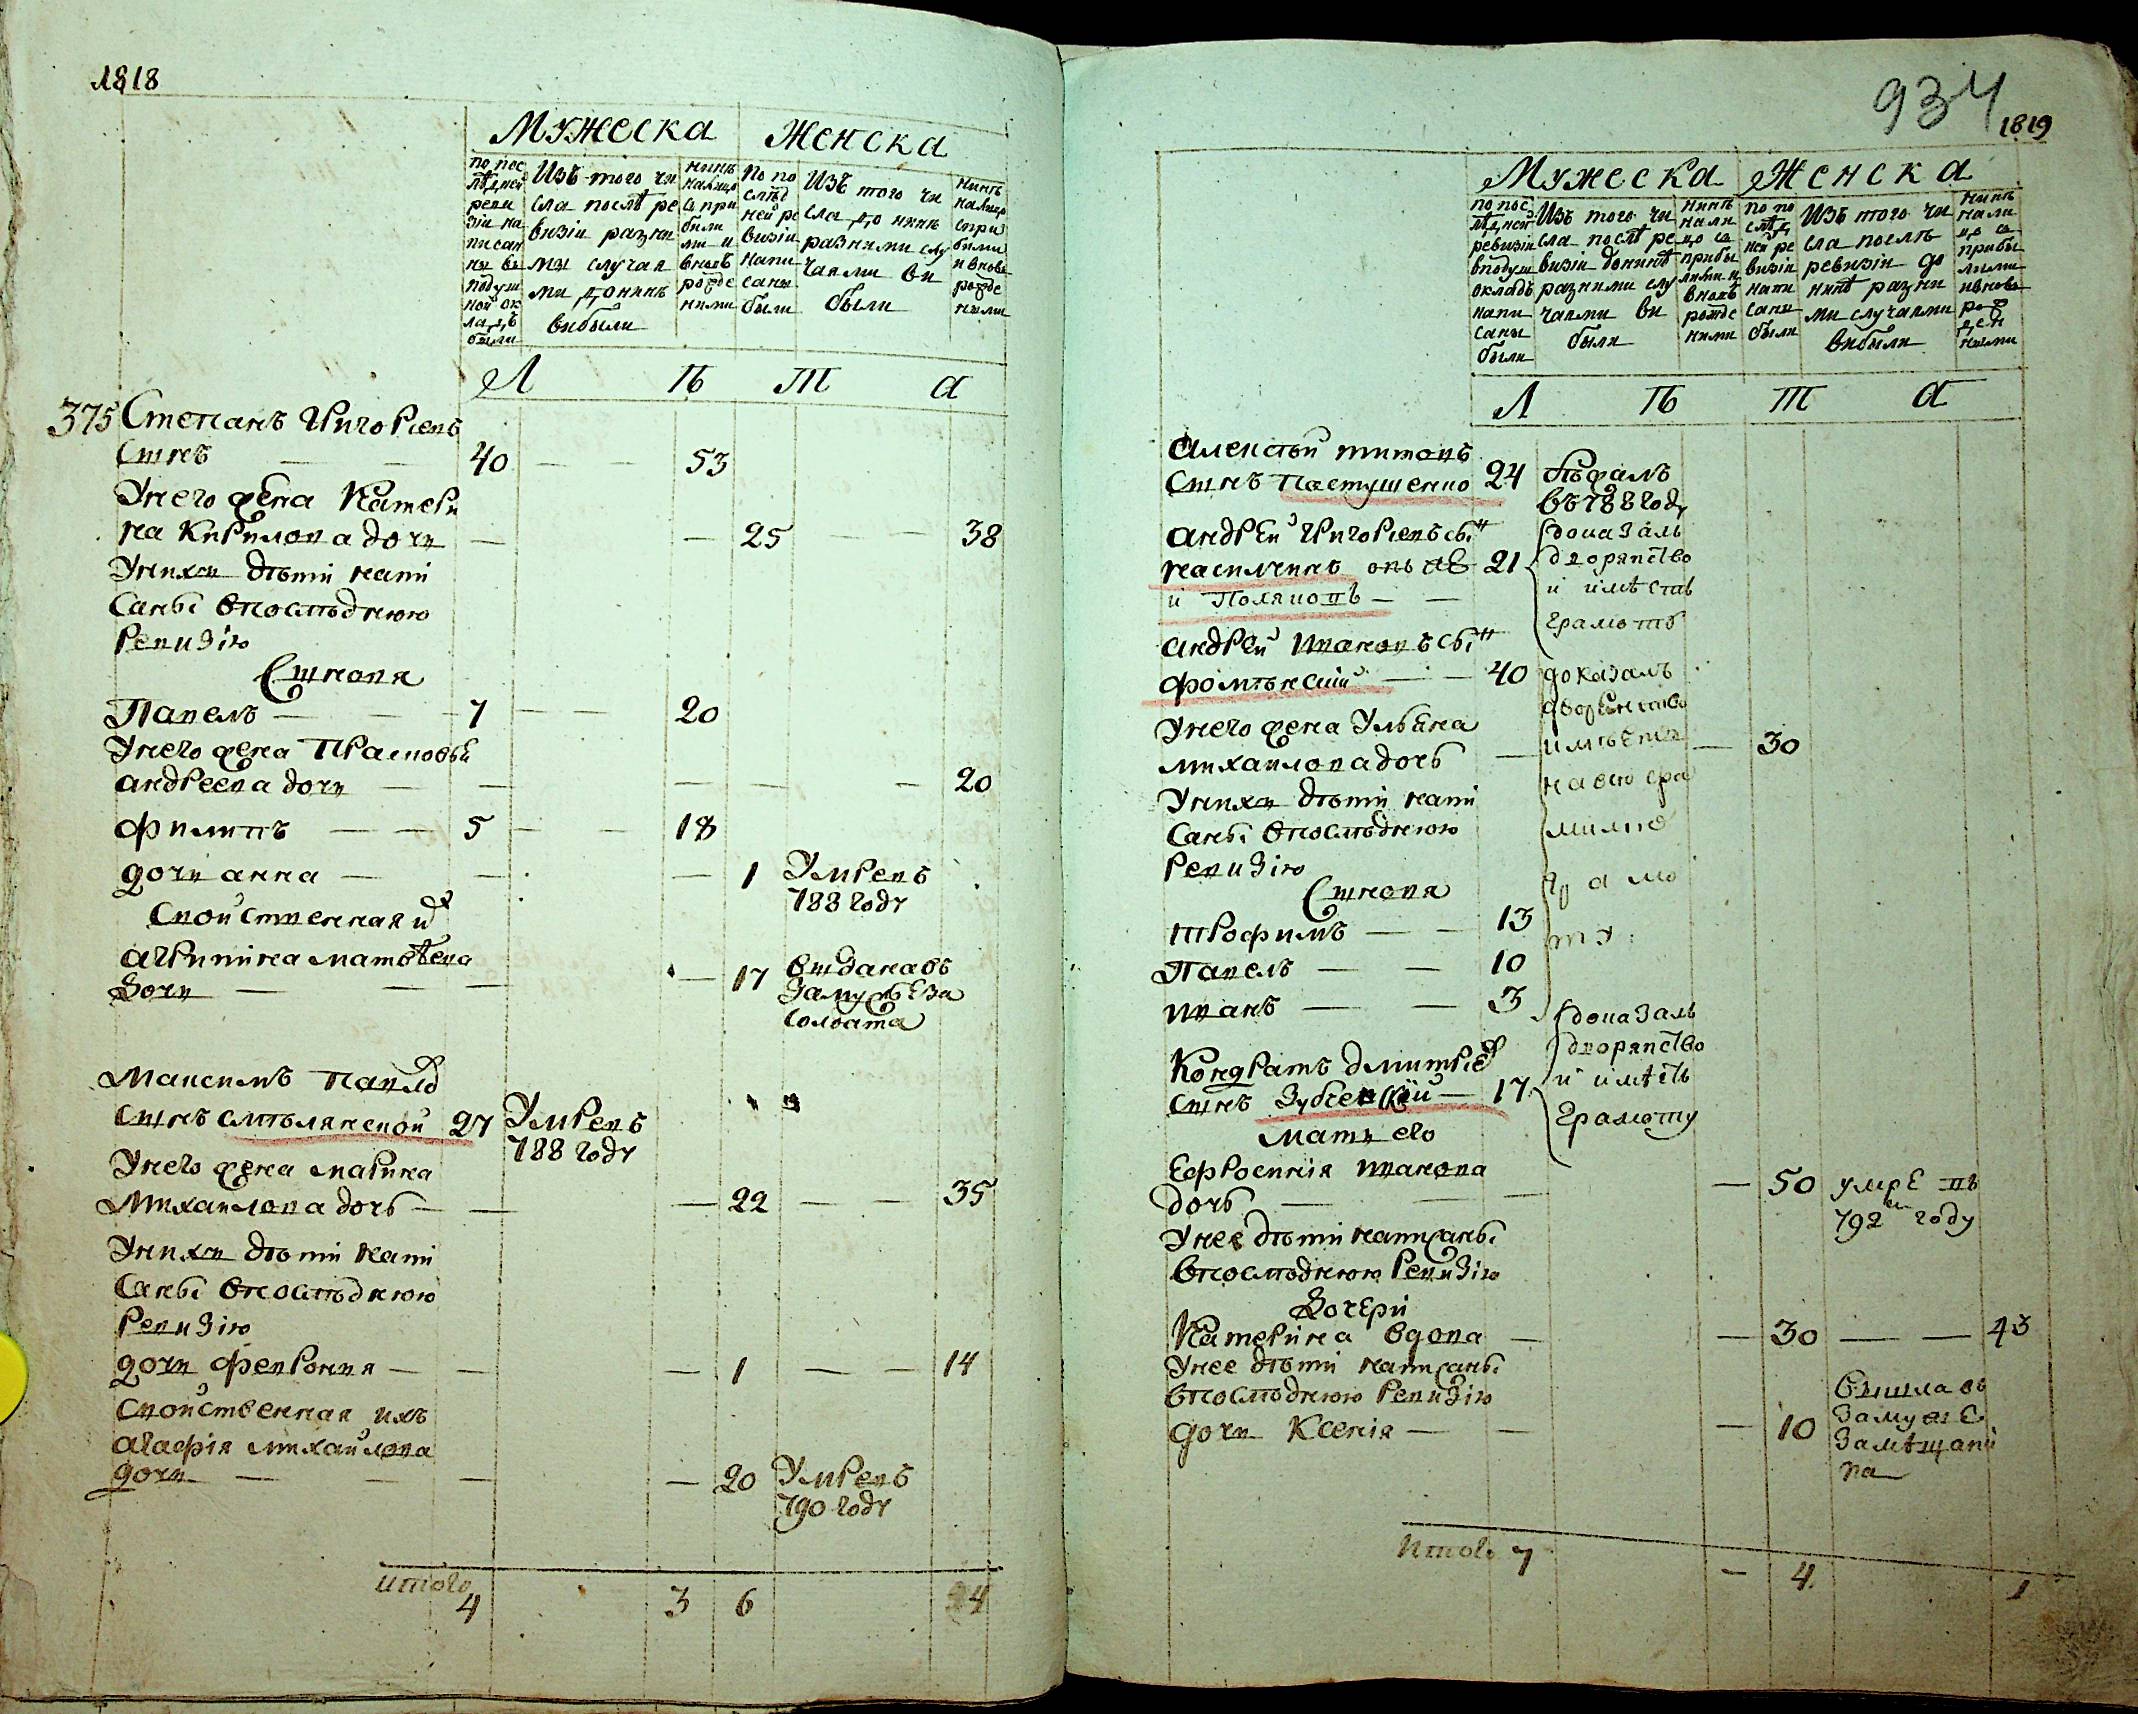 1818
Мужеска Женска
по пос
лѣдней
реви
зіи на
писан
ны въ
подуш
ной ок
ладъ
были
Изъ того чи
сла послѣ ре
визіи разны
ми случая
ми до нинѣ
вибыли
нинѣ
налицо
съ при
были
ми и
вновь
рожде
ними
По по
слѣд
ней ре
визіи
напи
саны
были
Изъ того чи
сла до нинѣ
разними слу
чаями ви
были
нинѣ
налицо
спри
были
ивновь
рожде
ними
Л Ѣ Т А
375 Степанъ Григориевъ
Сынъ — — 40 — — 53
Унего жена Катери
на Кирилова дочь — — 25 — — 38
Унихъ дѣти напи
саны впослѣднюю
Ревизію
Сыновя
Павелъ — — — 7 — — 20
Унего жена Прасковья
андреева дочь — — — — — 20
Филипъ — — 5 — — 18
дочь анна — — — 1 Умрепѣ
788 году
Свойственная их
агрипина матвѣева
Дочь — — — — 17 Выдана въ
Замужъ за
солдата
Максимъ Павло
Сынъ смѣлянской 27 Умревъ
788 году
Унего жена марина
Михаилова дочь — — — 22 — — 35
Унихъ дѣти напи
саны впослѣднюю
Ревизію
дочь Феврония — — — 1 — — 14
Свойственная ихъ
агафія михайлова
дочь — — — — 20 Умревъ
790 году
Итого
4 3 6 4
934
1819
Мужеска Женска
по пос
лѣдней
ревизіи
вподуш
окладъ
напи
саны
были
Изъ того чи
сла послѣ ре
визіи донинѣ
разними слу
чаями ви
были
нинѣ
нали
цо съ
прибы
лими и
вновь
рожде
ними
по по
слѣд
ней ре
визіи
напи
саны
были
Изъ того чи
сла послѣ
ревизіи до
нинѣ разни
ми случаями
вибыли
нинѣ
нали
цо съ
прибы
лими
ивновь
рож
ден
ними
Л Ѣ Т А
Алексѣй титовъ
Сынъ Пастушенко 24 бѣжалъ
въ 788 году
андрей Григориевъ сын
Василчинъ онъ же 21 доказалъ
дворянство
и Поляковъ — — и имѣетъ
грамотѣ
андрей Ивановъ сын
Фомѣнский — — 40 доказалъ
дворянство
Унего жена Уляна
михаилова дочь — имѣетъ — 30
на сию фра
Унихъ дѣти напи
саны впослѣднюю милию
Ревизію
Сыновя гра мо
Трофимъ — — 13 ту
Павелъ — — 10
иванъ — — 3
Кондратъ дмитрие
Сынъ Зубенский — 17 доказалъ
дворянство
и имѣетъ
грамоту
Мать его
Ефросинія иванова
дочь — — — — 50 умре въ
792м году
Унее дѣти написаны
впослѣднюю Ревизію
Дочери
Катерина вдова — — 30 — — 43
Унее дѣти написаны
впослѣднюю Ревизію
дочь Ксенія — — — 10 Вышла въ
замуже
замѣщани
на
Итого 7 — 4 1